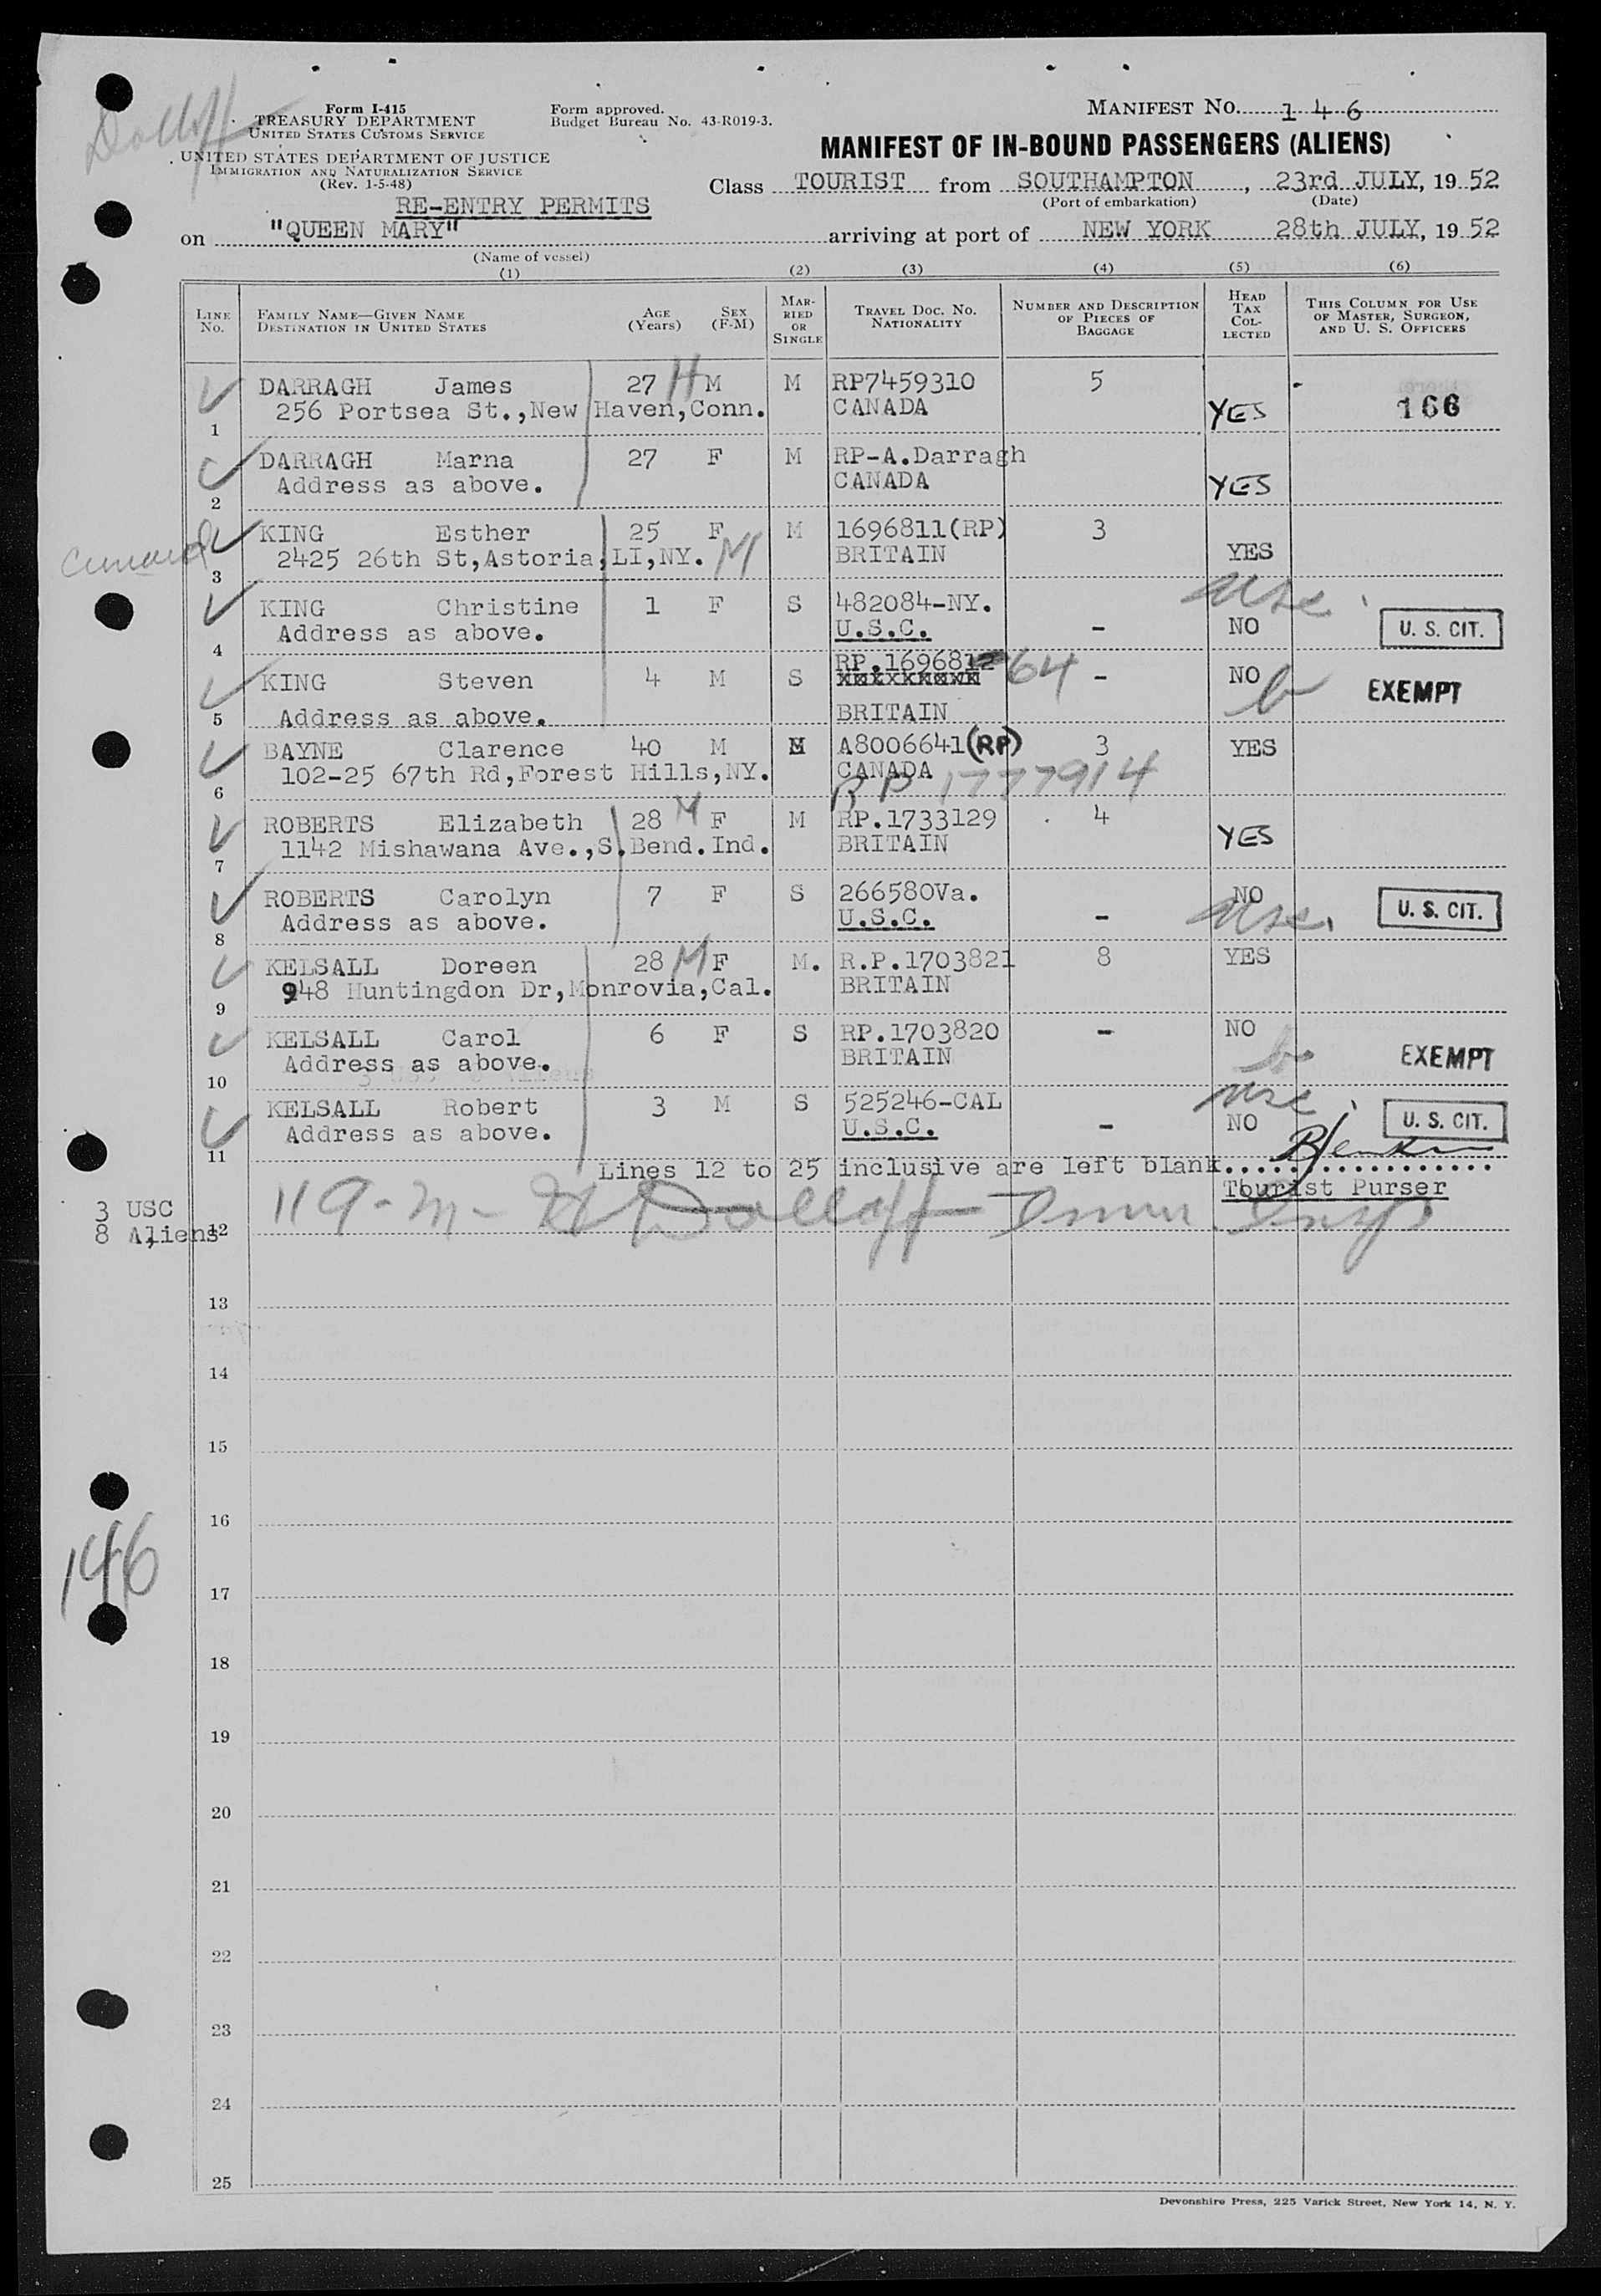 Dolloff
Form I-415
TREASURY DEPARTMENT
UNITED STATES CUSTOMS SERVICE
UNITED STATES DEPARTMENT OF JUSTICE
IMMIGRATION AND NATURALIZATION SERVICE
(Rev. 1-5-48)
Form approved.
Budget Bureau No. 43-R019-3.
MANIFEST NO. 146
MANIFEST OF IN-BOUND PASSENGERS (ALIENS)
Class TOURIST from SOUTHAMPTON, 23rd JULY, 19 52
(Port of embarkation) (Date)
RE-ENTRY PERMITS
on "QUEEN MARY" arriving at port of NEW YORK 28th JULY, 19 52
(Name of vessel)
(1) (2) (3) (4) (5) (6)
LINE NO. FAMILY NAME—GIVEN NAME DESTINATION IN UNITED STATES AGE (Years) SEX (F-M) MARRIED OR SINGLE TRAVEL DOC. NO. NATIONALITY NUMBER AND DESCRIPTION OF PIECES OF BAGGAGE HEAD TAX COLLECTED THIS COLUMN FOR USE OF MASTER, SURGEON, AND U. S. OFFICERS
DARRAGH James 27 H M M RP7459310 5
256 Portsea St.,New Haven,Conn. CANADA YES 166
1
DARRAGH Marna 27 F M RP-A.Darragh
Address as above. CANADA YES
2
Cunard
KING Esther 25 F M 1696811(RP) 3
2425 26th St,Astoria,LI,NY. M BRITAIN YES
3
KING Christine 1 F S 482084-NY. usc.
Address as above. U.S.C. - NO U. S. CIT.
4
RP.1696812 64
KING Steven 4 M S - NO EXEMPT
5 Address as above. BRITAIN
BAYNE Clarence 40 M M A8006641(RP) 3 YES
102-25 67th Rd,Forest Hills,NY. CANADA
6 RP 1777914
ROBERTS Elizabeth 28 M F M RP.1733129 4
1142 Mishawana Ave.,S.Bend.Ind. BRITAIN YES
7
ROBERTS Carolyn 7 F S 266580Va. NO
Address as above. U.S.C. - usc. U. S. CIT.
8
KELSALL Doreen 28 M F M. R.P.1703821 8 YES
948 Huntingdon Dr,Monrovia,Cal. BRITAIN
9
KELSALL Carol 6 F S RP.1703820 - NO
Address as above. BRITAIN EXEMPT
10
KELSALL Robert 3 M S 525246-CAL usc.
Address as above. U.S.C. - NO U. S. CIT.
11
Lines 12 to 25 inclusive are left blank..................
Tourist Purser
3 USC
8 Aliens
12
119-M- Dolloff Immn Insp
13
14
15
16
146
17
18
19
20
21
22
23
24
25
Devonshire Press, 225 Varick Street, New York 14, N. Y.